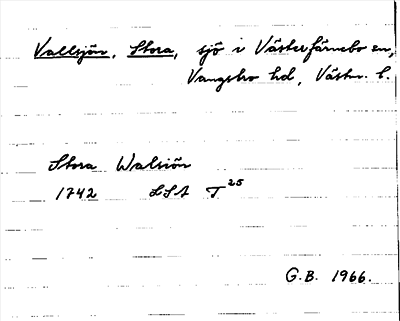 Vallsjön, Stora, sjö i Västerfärnebo sn,
Vangsbro hd, Västm. l.
Stora Walsiön
1742 LSA T 25
G.B. 1966.